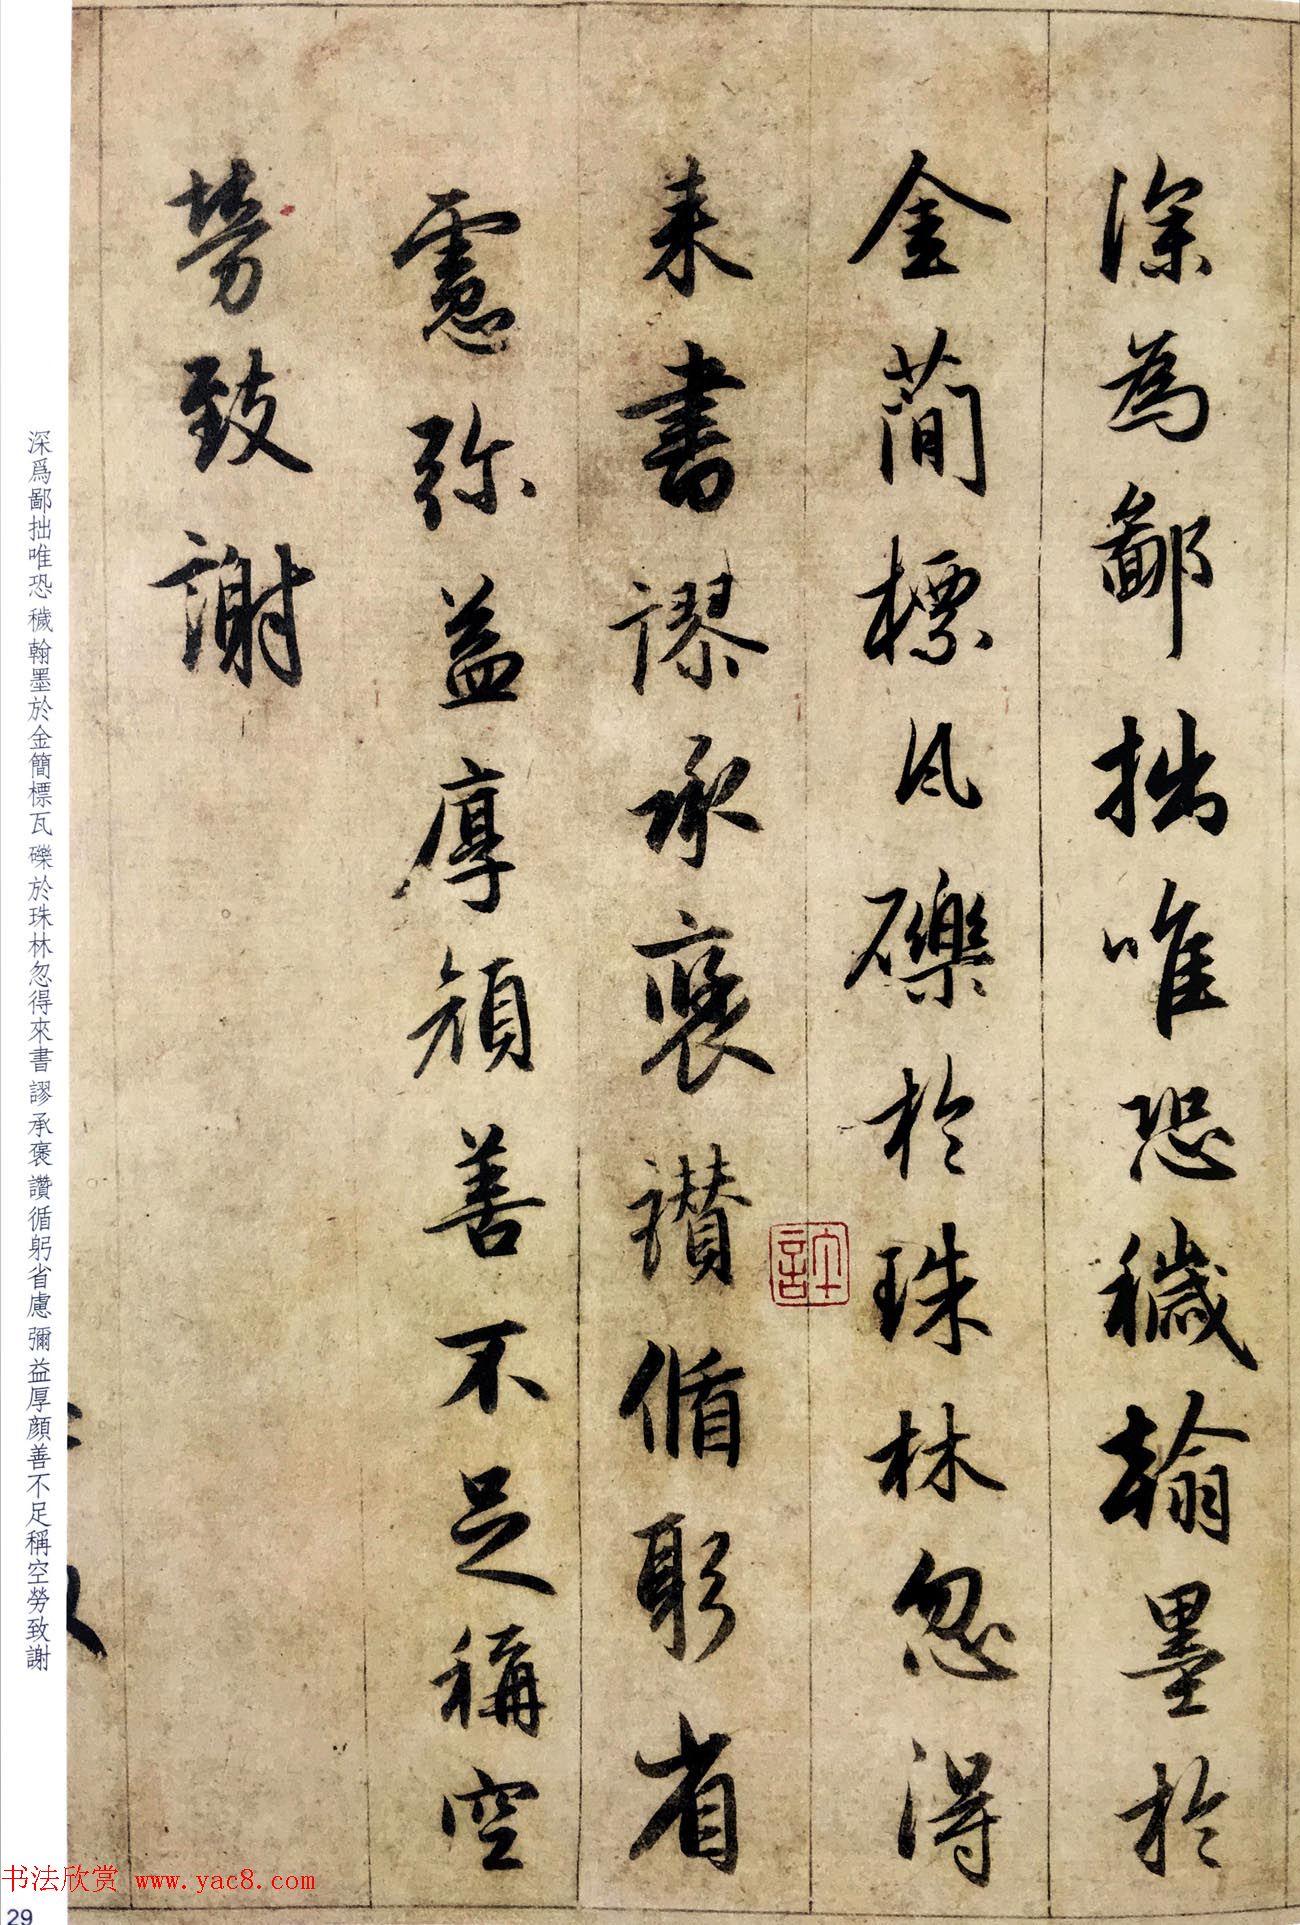 深為鄙拙唯恐穢翰墨於
金簡標瓦礫於珠林忽得
来書謬承褒讃循躬省
慮弥益厚顔善不足稱空
勞致謝
深爲鄙拙唯恐穢翰墨於金簡標瓦礫於珠林忽得來書謬承褒讚循躬省慮彌益厚顏善不足稱空勞致謝
书法欣赏 www.yac8.com
29